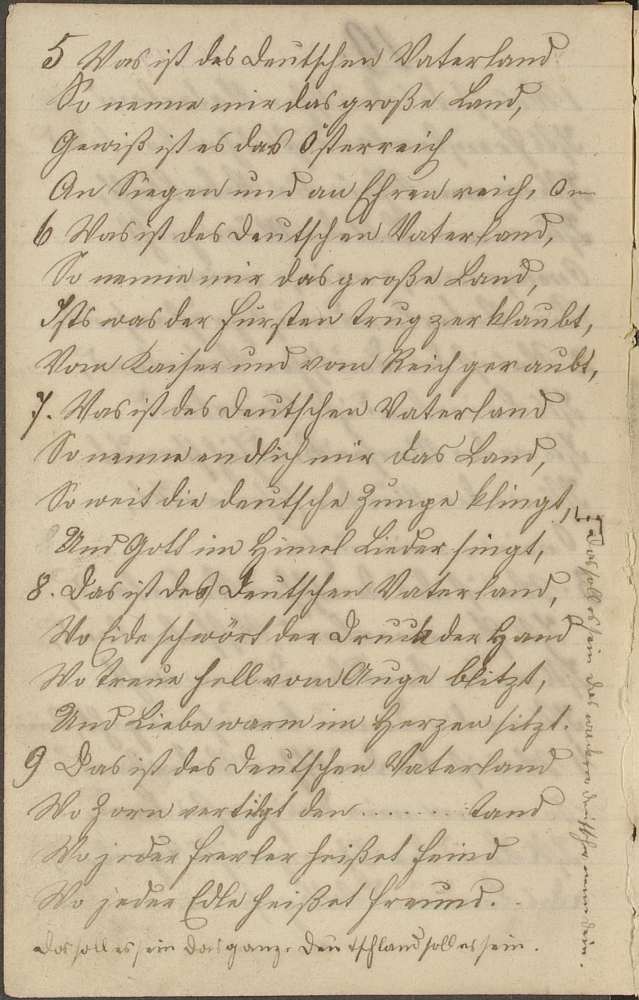 5 Was ist des Deutschen Vaterland
So nenne mir das große Land,
Gewiß ist es das Österreich
An Siegen und an Ehren reich,
6 Was ist des Deutschen Vaterland,
So nenne mir das große Land,
Ists was der Fürsten trug zerklaubt,
Vom Kaiser und vom Reich geraubt,
7. Was ist des Deutschen Vaterland
So nenne endlich mir das Land,
So weit die deutsche Zunge klingt,
Und Gott im Himel Lieder singt,
8. Das ist des Deutschen Vaterland,
Wo Eide schwört der Druck der Hand
Wo treue hell vom Auge blitzt,
Und Liebe warm im Herzen sitzt.
9 Das ist des Deutschen Vaterland
Wo Zorn vertilgt den ........ tand
Wo jeder Frevler heißet Feind
Wo jeder Edle heißet Freund.
Das soll es sein das ganze Deutschland soll es sein.
Das soll es sein das wackere Deutsche nenne dein.